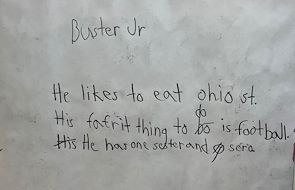 Buster Jr
He likes to eat ohio st.
His fafrit thing to do is football.
He has one sester and